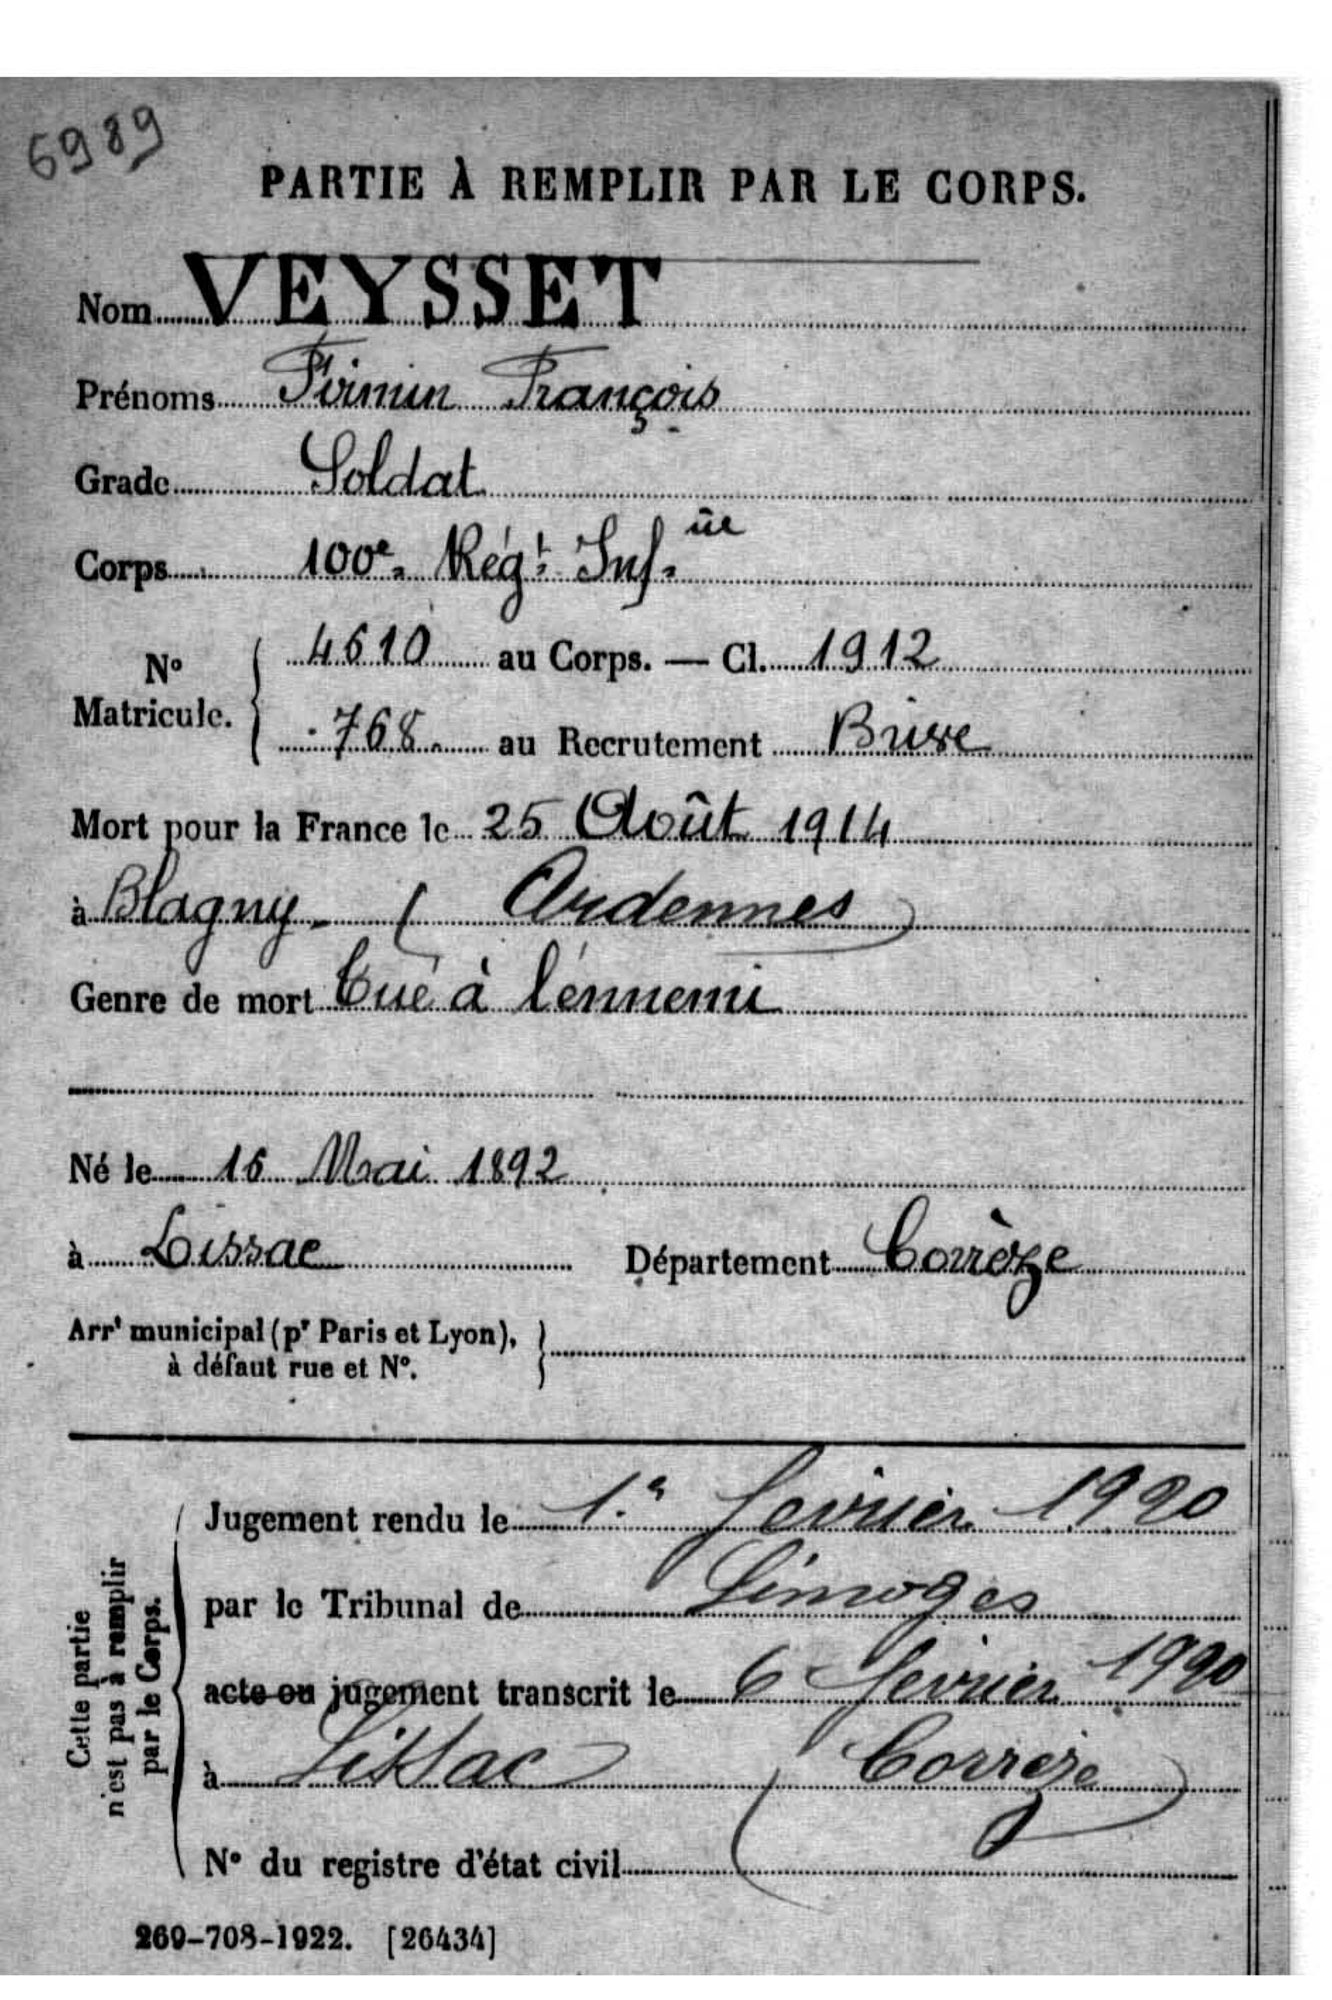 6989
PARTIE À REMPLIR PAR LE CORPS.
Nom VEYSSET
Prénoms Firmin François
Grade Soldat
Corps 100e. Rég.t Inf.ie
No Matricule. 4610 au Corps. — Cl. 1912
768. au Recrutement Brive
Mort pour la France le 25 Août 1914
à Blagny (Ardennes)
Genre de mort Tué à l'énnemi
Né le 16 Mai 1892
à Lissac Département Corrèze
Arrt municipal (pr Paris et Lyon),
à défaut rue et No.
Cette partie n'est pas à remplir par le Corps.
Jugement rendu le 1er fevrier 1920
par le Tribunal de Limoges
acte ou jugement transcrit le 6 fevrier 1920
à Lissac (Correze)
No du registre d'état civil
269-708-1922. [26434]